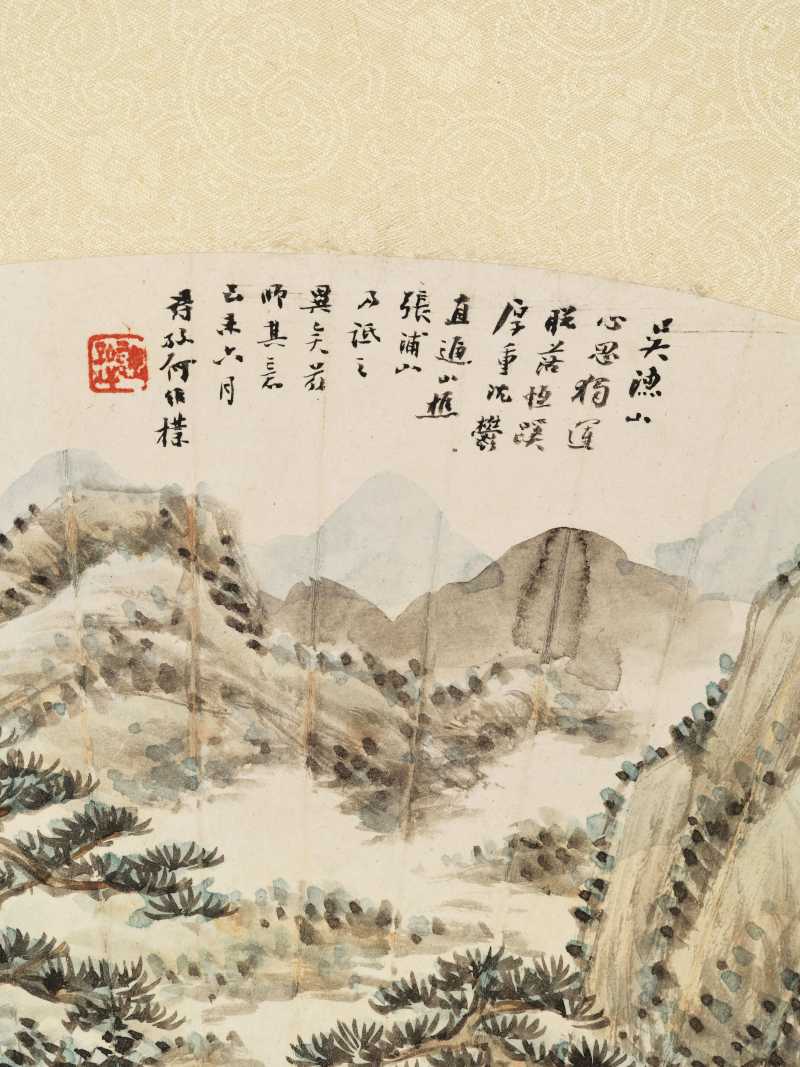 吳漁山
心思獨運
脫落恒蹊
厚重沈鬱
直逼山樵
張浦山
乃詆之
異矣茲
師其意
己未六月
何維樸